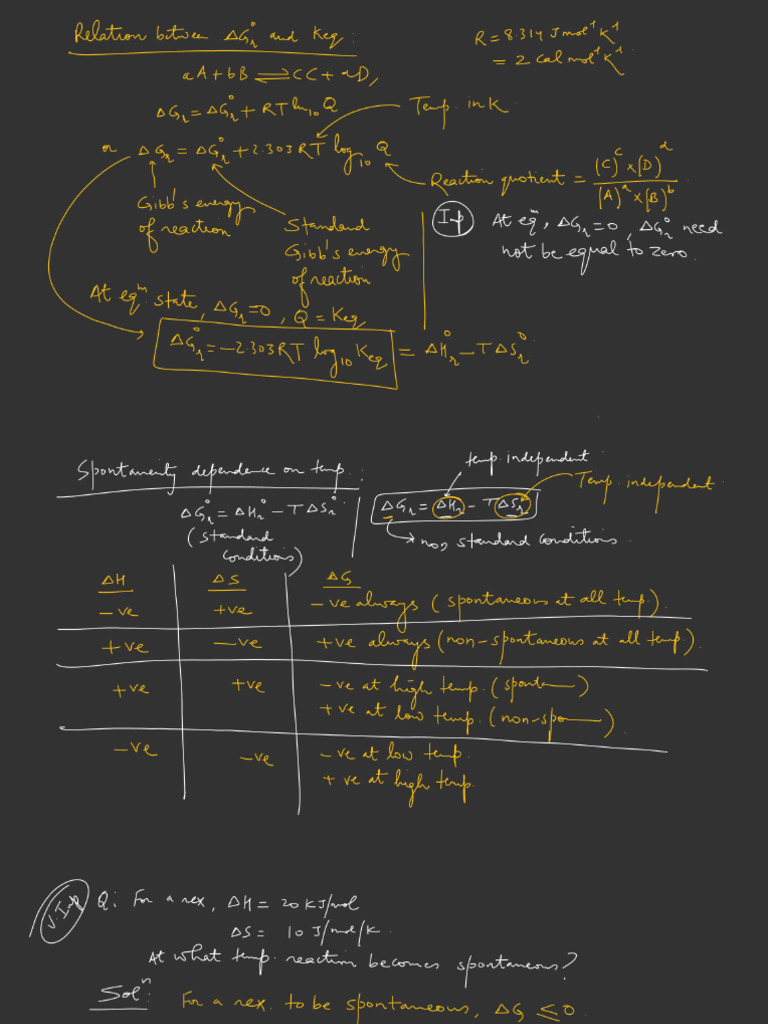 Relation between ΔG°r and Keq:
R = 8.314 J mol⁻¹ K⁻¹
= 2 Cal mol⁻¹ K⁻¹
aA + bB ⇌ cC + dD,
ΔGr = ΔG°r + RT ln Q
Temp. in K
or ΔGr = ΔG°r + 2.303RT log₁₀ Q
Reaction quotient = (C)^c × [D]^d / [A]^a × [B]^b
Gibb's energy
of reaction
Standard
Gibb's energy
of reaction
Imp
At eqᵐ, ΔGr = 0, ΔG°r need
not be equal to zero.
At eqᵐ state, ΔGr = 0, Q = Keq
ΔG°r = -2.303RT log₁₀ Keq = ΔH°r - TΔS°r
Spontaneity dependence on temp.:
temp. independent
Temp. independent
ΔG°r = ΔH°r - TΔS°r
(standard
conditions)
ΔGr = ΔHr - TΔS°r
→ non standard conditions
ΔH ΔS ΔG
-ve +ve -ve always (spontaneous at all temp).
+ve -ve +ve always (non-spontaneous at all temp).
+ve +ve -ve at high temp. (spontan—)
+ve at low temp. (non-spon—).
-ve -ve -ve at low temp.
+ve at high temp.
V. Imp
Q: For a rex, ΔH = 20 KJ/mol
ΔS = 10 J/mol/K.
At what temp. reaction becomes spontaneous?
Solⁿ: For a rex. to be spontaneous, ΔG ≤ 0.